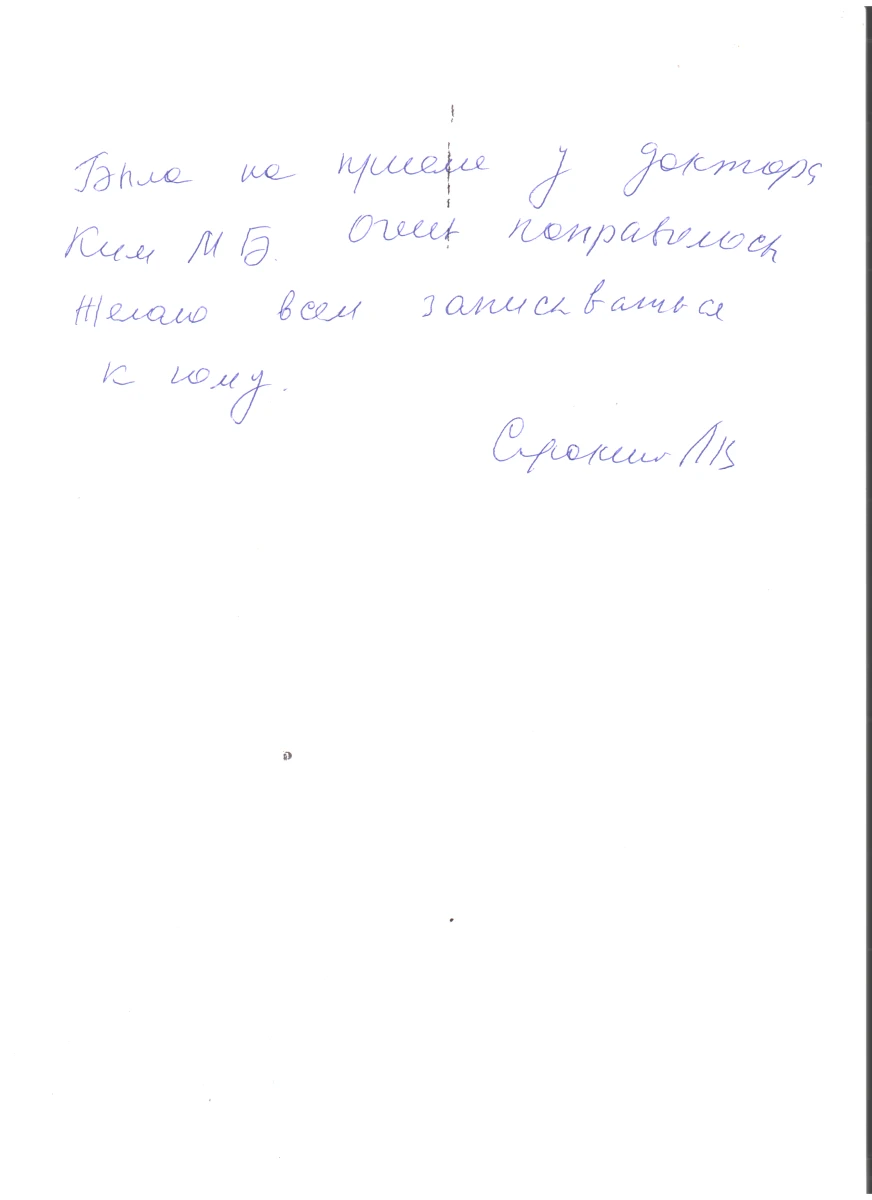 Была на приеме у доктора
Ким М Б. Очень понравилось
Желаю всем записываться
к